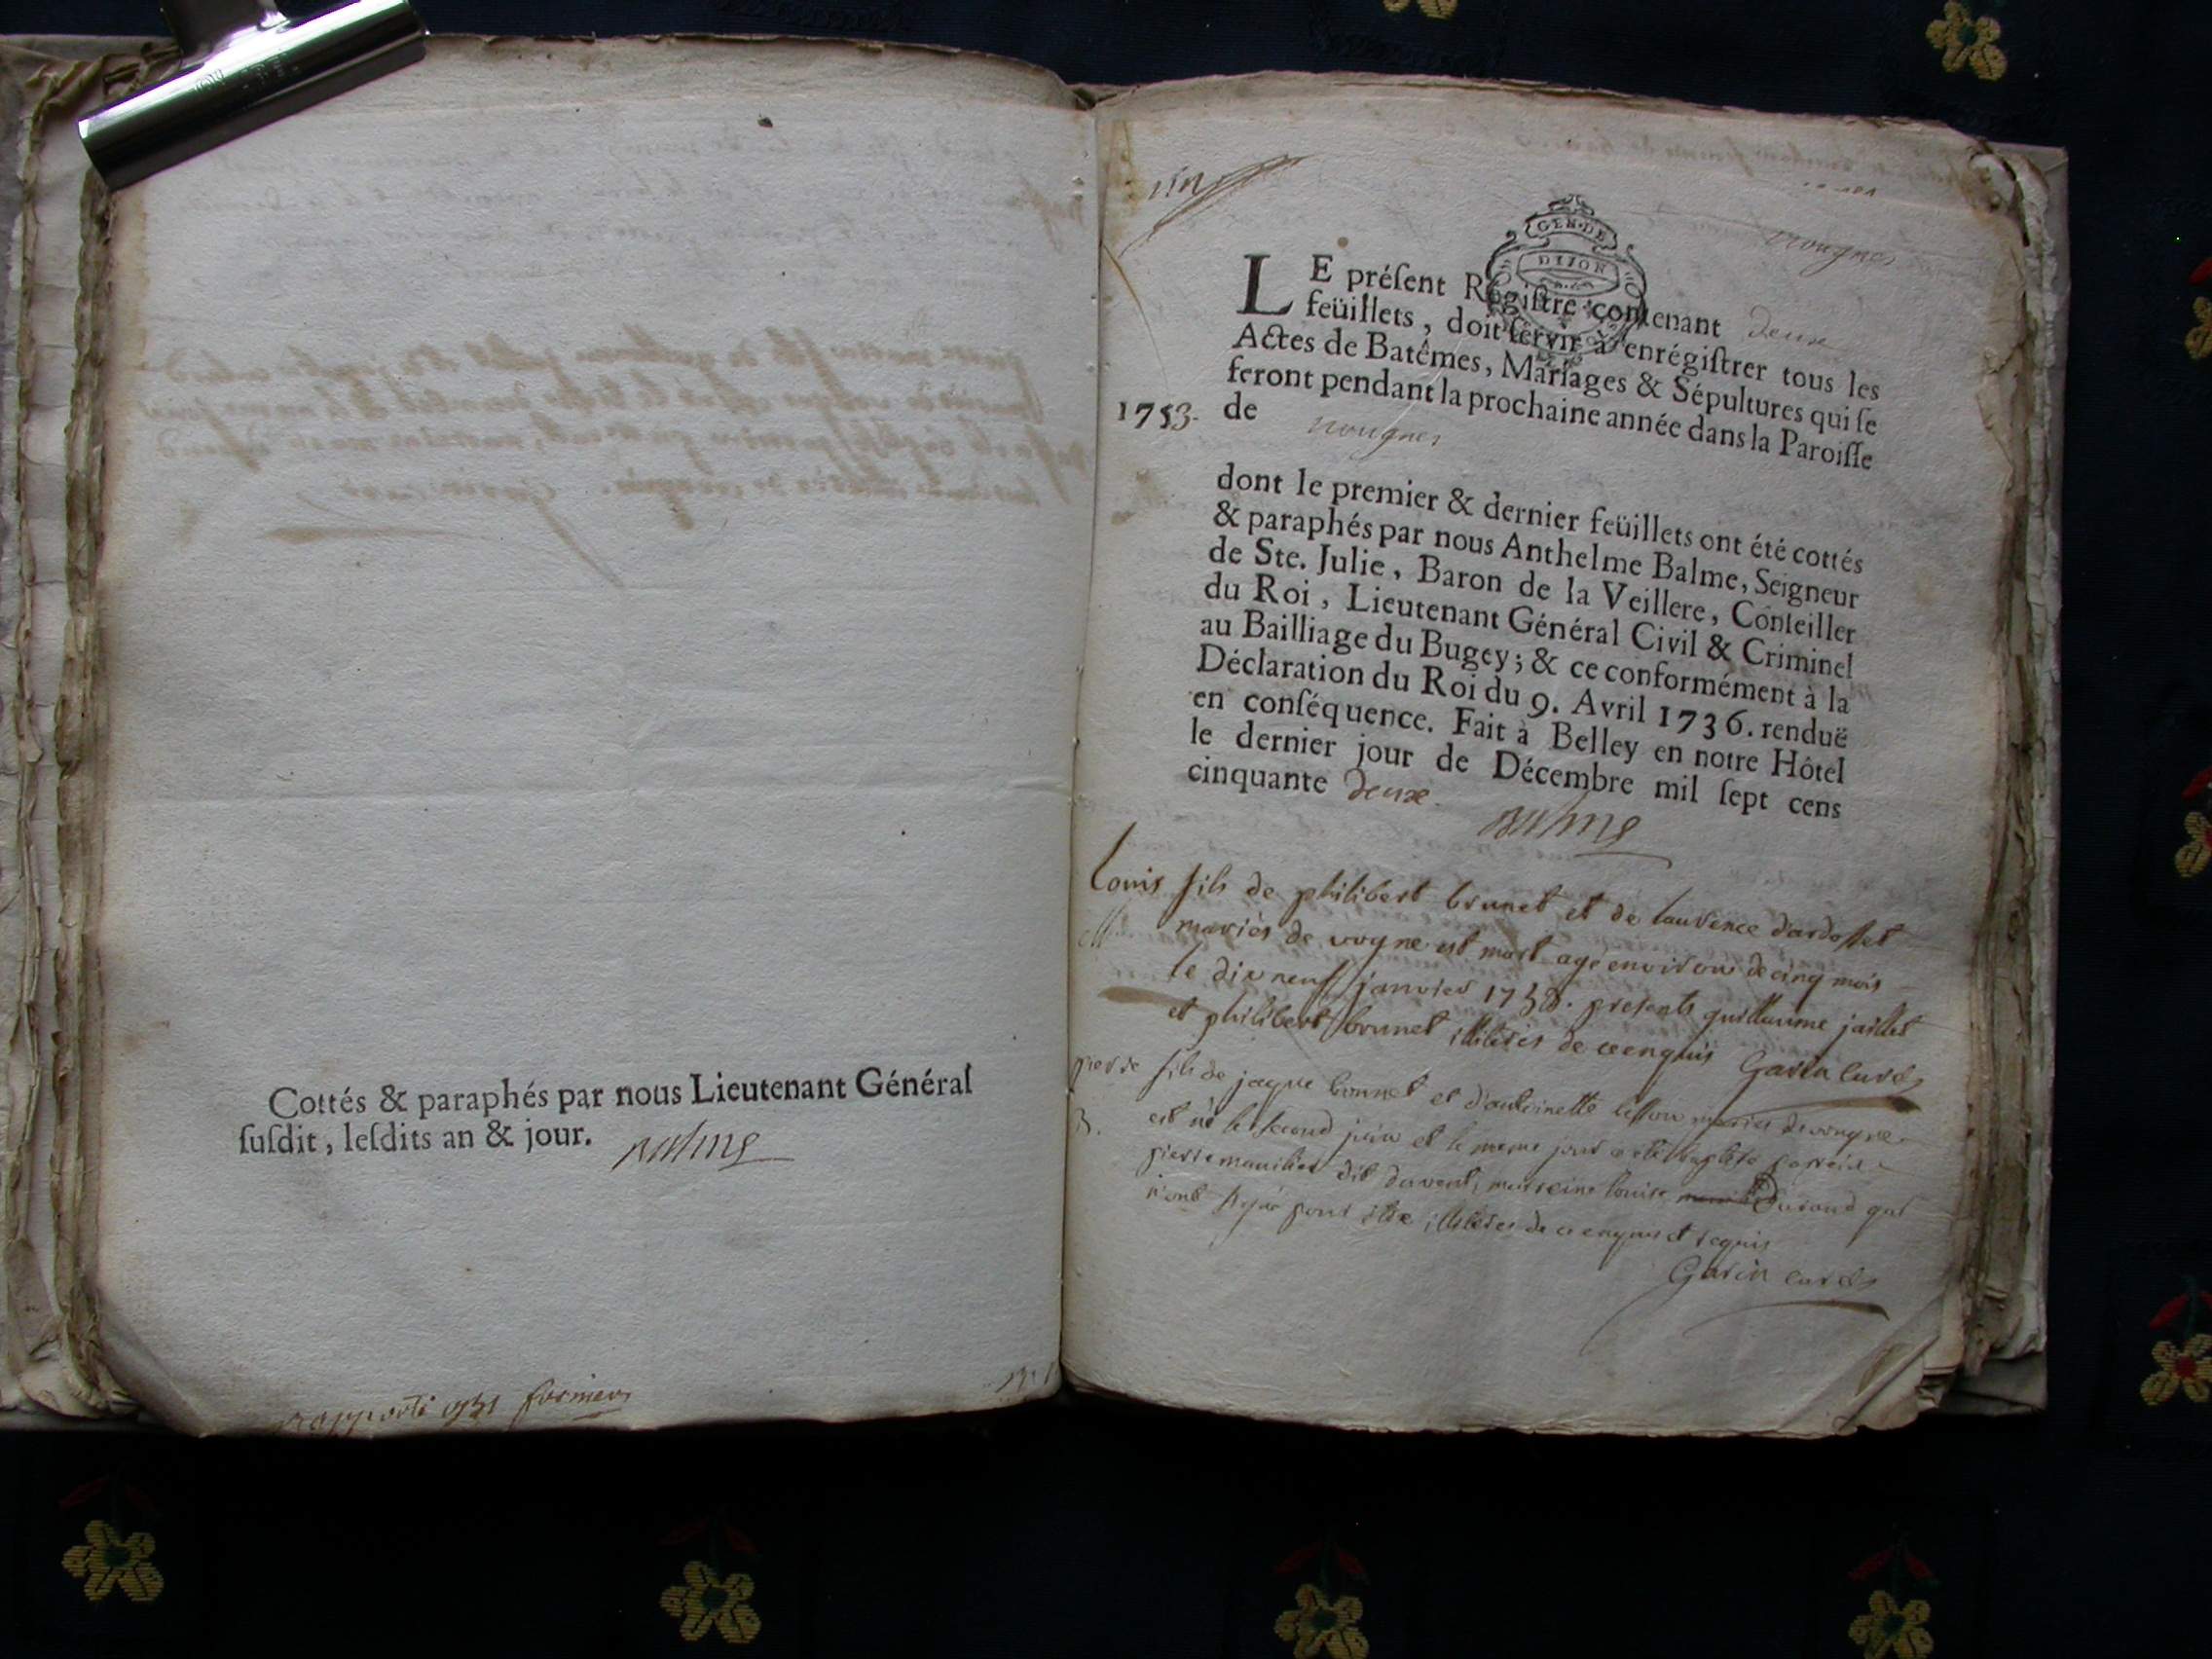 Cottés & paraphés par nous Lieutenant Général
ſuſdit, leſdits an & jour. Balme
rapporté
GEN·DE
DIJON
vougnes
LE préſent Régiſtre contenant deux
feüillets, doit ſervir à enrégiſtrer tous les
Actes de Batêmes, Mariages & Sépultures qui ſe
feront pendant la prochaine année dans la Paroiſſe
1753. de vougnes
dont le premier & dernier feüillets ont été cottés
& paraphés par nous Anthelme Balme, Seigneur
de Ste. Julie, Baron de la Veillere, Conſeiller
du Roi, Lieutenant Général Civil & Criminel
au Bailliage du Bugey; & ce conformément à la
Déclaration du Roi du 9. Avril 1736. renduë
en conſéquence. Fait à Belley en notre Hôtel
le dernier jour de Décembre mil ſept cens
cinquante deux.
Balme
Louis fils de philibert brunet et de laurence dardosset
mariés de vogne est mort agé environ de cinq mois
le dix neuf janvier presents guillaume jaillet
et philibert brunet illiterés de ce enquis Garin curé
pierre fils de jaque bonnet et d'antoinette mariés de vongne
B. est né le second juin et le meme jour a eté baptisé parrein
pierre dit marreine louise Durand qui
n'ont signé pour etre illiterés de ce enquis et requis
Garin curé